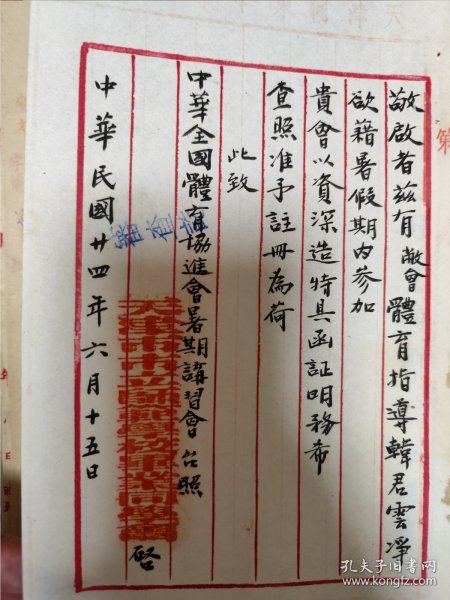 敬啟者茲有敝會體育指導韓君雲凈
欲藉暑假期內參加
貴會以資深造特具函証明務希
查照准予註冊為荷
此致
中華全國體育協進會暑期講習會 台照
天津市市立師範學校畢業同學會
啓
中華民國廿四年六月十五日
孔夫子旧书网